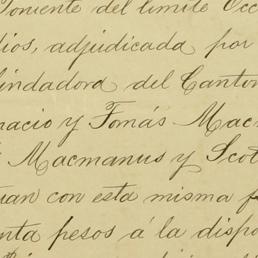 Poniente del límite Occ
dios, adjudicada por
lindadora del Canton
nacio y Tomás Mac
Macmanus y Scot
uan con esta misma f
nta pesos á la dispo